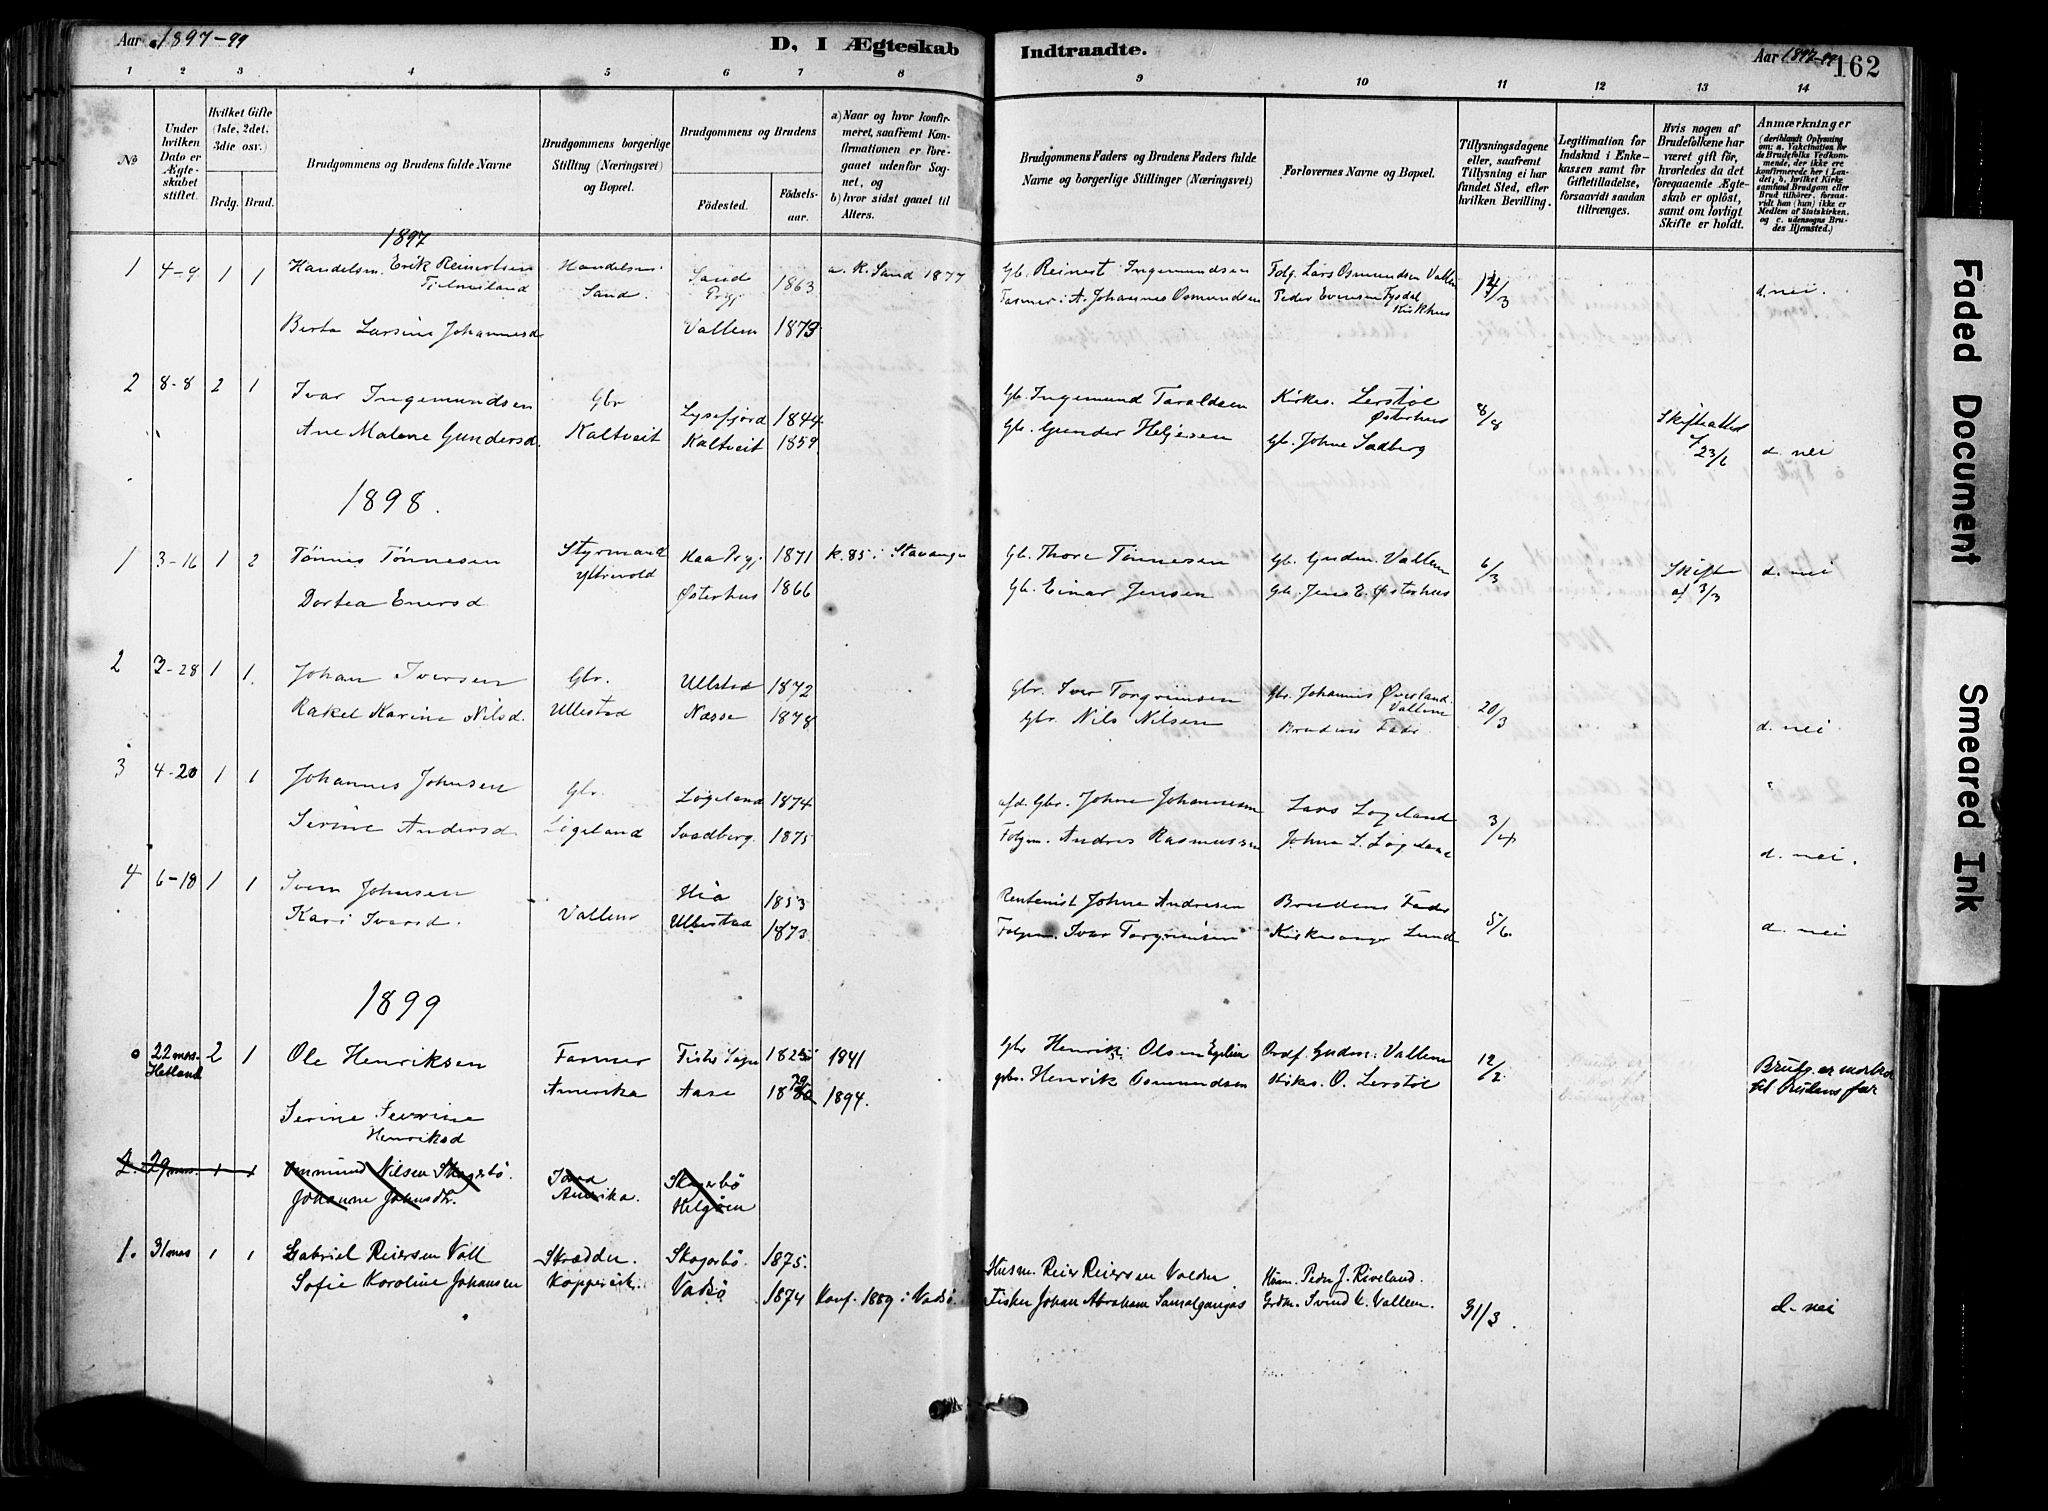 Aar 1897-99
D, I Ægteskab Indtraadte.
Aar 1897-99
162
1 2 3 4 5 6 7 8 9 10 11 12 13 14
No
Under hvilken Dato er Ægteskabet stiftet.
Hvilket Gifte (1ste, 2det, 3die osv.)
Brdg. Brud.
Brudgommens og Brudens fulde Navne
Brudgommens borgerlige Stilling (Næringsvei) og Bopæl.
Brudgommens og Brudens
Födested.
Födselsaar.
a) Naar og hvor konfirmeret, saafremt Konfirmationen er foregaaet udenfor Sognet, og
b) hvor sidst gaaet til Alters.
Brudgommens Faders og Brudens Faders fulde Navne og borgerlige Stillinger (Næringsvei)
Forlovernes Navne og Bopæl.
Tillysningsdagene eller, saafremt Tillysning ei har fundet Sted, efter hvilken Bevilling.
Legitimation for Indskud i Enkekassen samt for Giftetilladelse, forsaavidt saadan tiltrænges.
Hvis nogen af Brudefolkene har været gift før, hvorledes da det foregaaende Ægteskab er opløst, samt om lovligt Skifte er holdt.
Anmærkninger
(deriblandt Oplysning om: a. Vakcination for de Brudefolks Vedkommende, der ikke ere konfirmerede her i Landet; b. hvilket Kirkesamfund Brudgom eller Brud tilhører, forsaavidt han (hun) ikke er Medlem af Statskirken, og c. udensogns Brudes Hjemsted.)
1897
1 4-9 1 1 Handelsm. Erik Reinertsen Handelsm. Sand Prgj 1863 a. K. Sand 1877 Gb. Reinert Ingemundsen Folg. Lars Osmundsen Vallem d. nei.
Sand.
Farmer i A. Johannes Osmundsen Peder Evensen Tysdal Kirkhus
Berta Larsine Johannesd Vallem 1873
2 8-8 2 1 Ivar Ingemundsen Gbr Lysefjord 1844 Gb. Ingemund Taraldsen Kirkes. Lerstøl Østerhus 8/8 Skifteattest
Ane Malene Gundersd. Kaltveit Kaltveit 1859 Gb. Gunder Heljesen Gb. Johne Sadberg 23/6 d. nei
1898.
1 3-16 1 2 Tönnes Tönnesen Styrmand Haa Prgj. 1871 k. 85 i Stavanger Gb. Thore Tönnesen Gb. Gudm. Vallem 6/3 Skifte af 3/3 d. nei
Dortea Enersd. Østerhus 1866 Gb. Einar Jensen Gb. Jens E. Østerhus
2 3-28 1 1. Johan Iversen Gbr. Ullestad 1872 Gbr. Iver Torgrimsen Gbr. Johannis Øverland Vallem 20/3
Rakel Karine Nilsd. Ullestad Næsse 1878 Gbr. Nils Nilsen Brudens Fader d. nei
3 4-20 1 1 Johannes Johnsen Gbr. Løgeland 1874 afd. Gbr. Johne Johannesen Lars Logeland 3/4
Serine Andersd. Løgeland Svadberg 1875 Folgm. Andres Rasmussen Johne L. Løgeland d. nei.
4 6-18 1 1 Sven Johnsen Vallem Hia 1853 Rentenist Johne Andresen Brudens Fader 5/6
Kari Ivarsd. Ullestad 1873 Folgem. Ivar Torgrimsen Kirkesanger Lund d. nei
1899
0 22 mars. Hetland 2 1 Ole Henriksen Farmer Amerika 1841 Gbr Henrik Olsen Egeland Ordf. Gudm. Vallem 12/2 Brudg. er morbror til brudens far
Serine Severine Henriksd Aase 1894. gbr. Henrik Osmundsen Kirkes. O. Lerstöl
2. 29 mars. 1 1 Ommund Nilsen Skogerbö. Amerika. Skogerbö
Johanne Johnsdtr. Helgöen
1. 31 mars 1 1 Gabriel Reiersen Vall Skrædder. Skogerbö. 1875. Husm. Reier Reiersen Valdm. Husm. Peder J. Riveland.
Sofie Karoline Johansen Koppervik. Vadsö 1874 Konf. 1889 i Vadsö. Fisker Johan Abraham Samalgangas Grdm. Svend K. Vallem. 31/3 d. nei
Faded Document
Smeared Ink